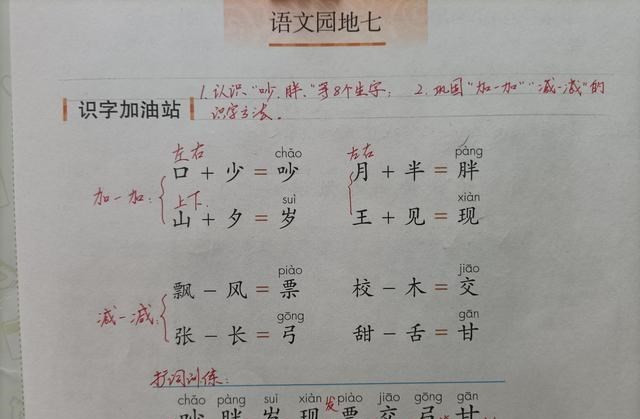 语文园地七
1.认识"吵、胖"等8个生字； 2.巩固"加一加""减一减"的
识字加油站 识字方法。
左右 chǎo 左右 pàng
口 + 少 = 吵 月 + 半 = 胖
加一加：
上下 suì xiàn
山 + 夕 = 岁 王 + 见 = 现
piào jiāo
飘 − 风 = 票 校 − 木 = 交
减一减：
gōng gān
张 − 长 = 弓 甜 − 舌 = 甘
扩词训练：
chǎo pàng suì xiàn 发 piào jiāo gōng gān
吵 胖 岁 现 票 交 弓 甘